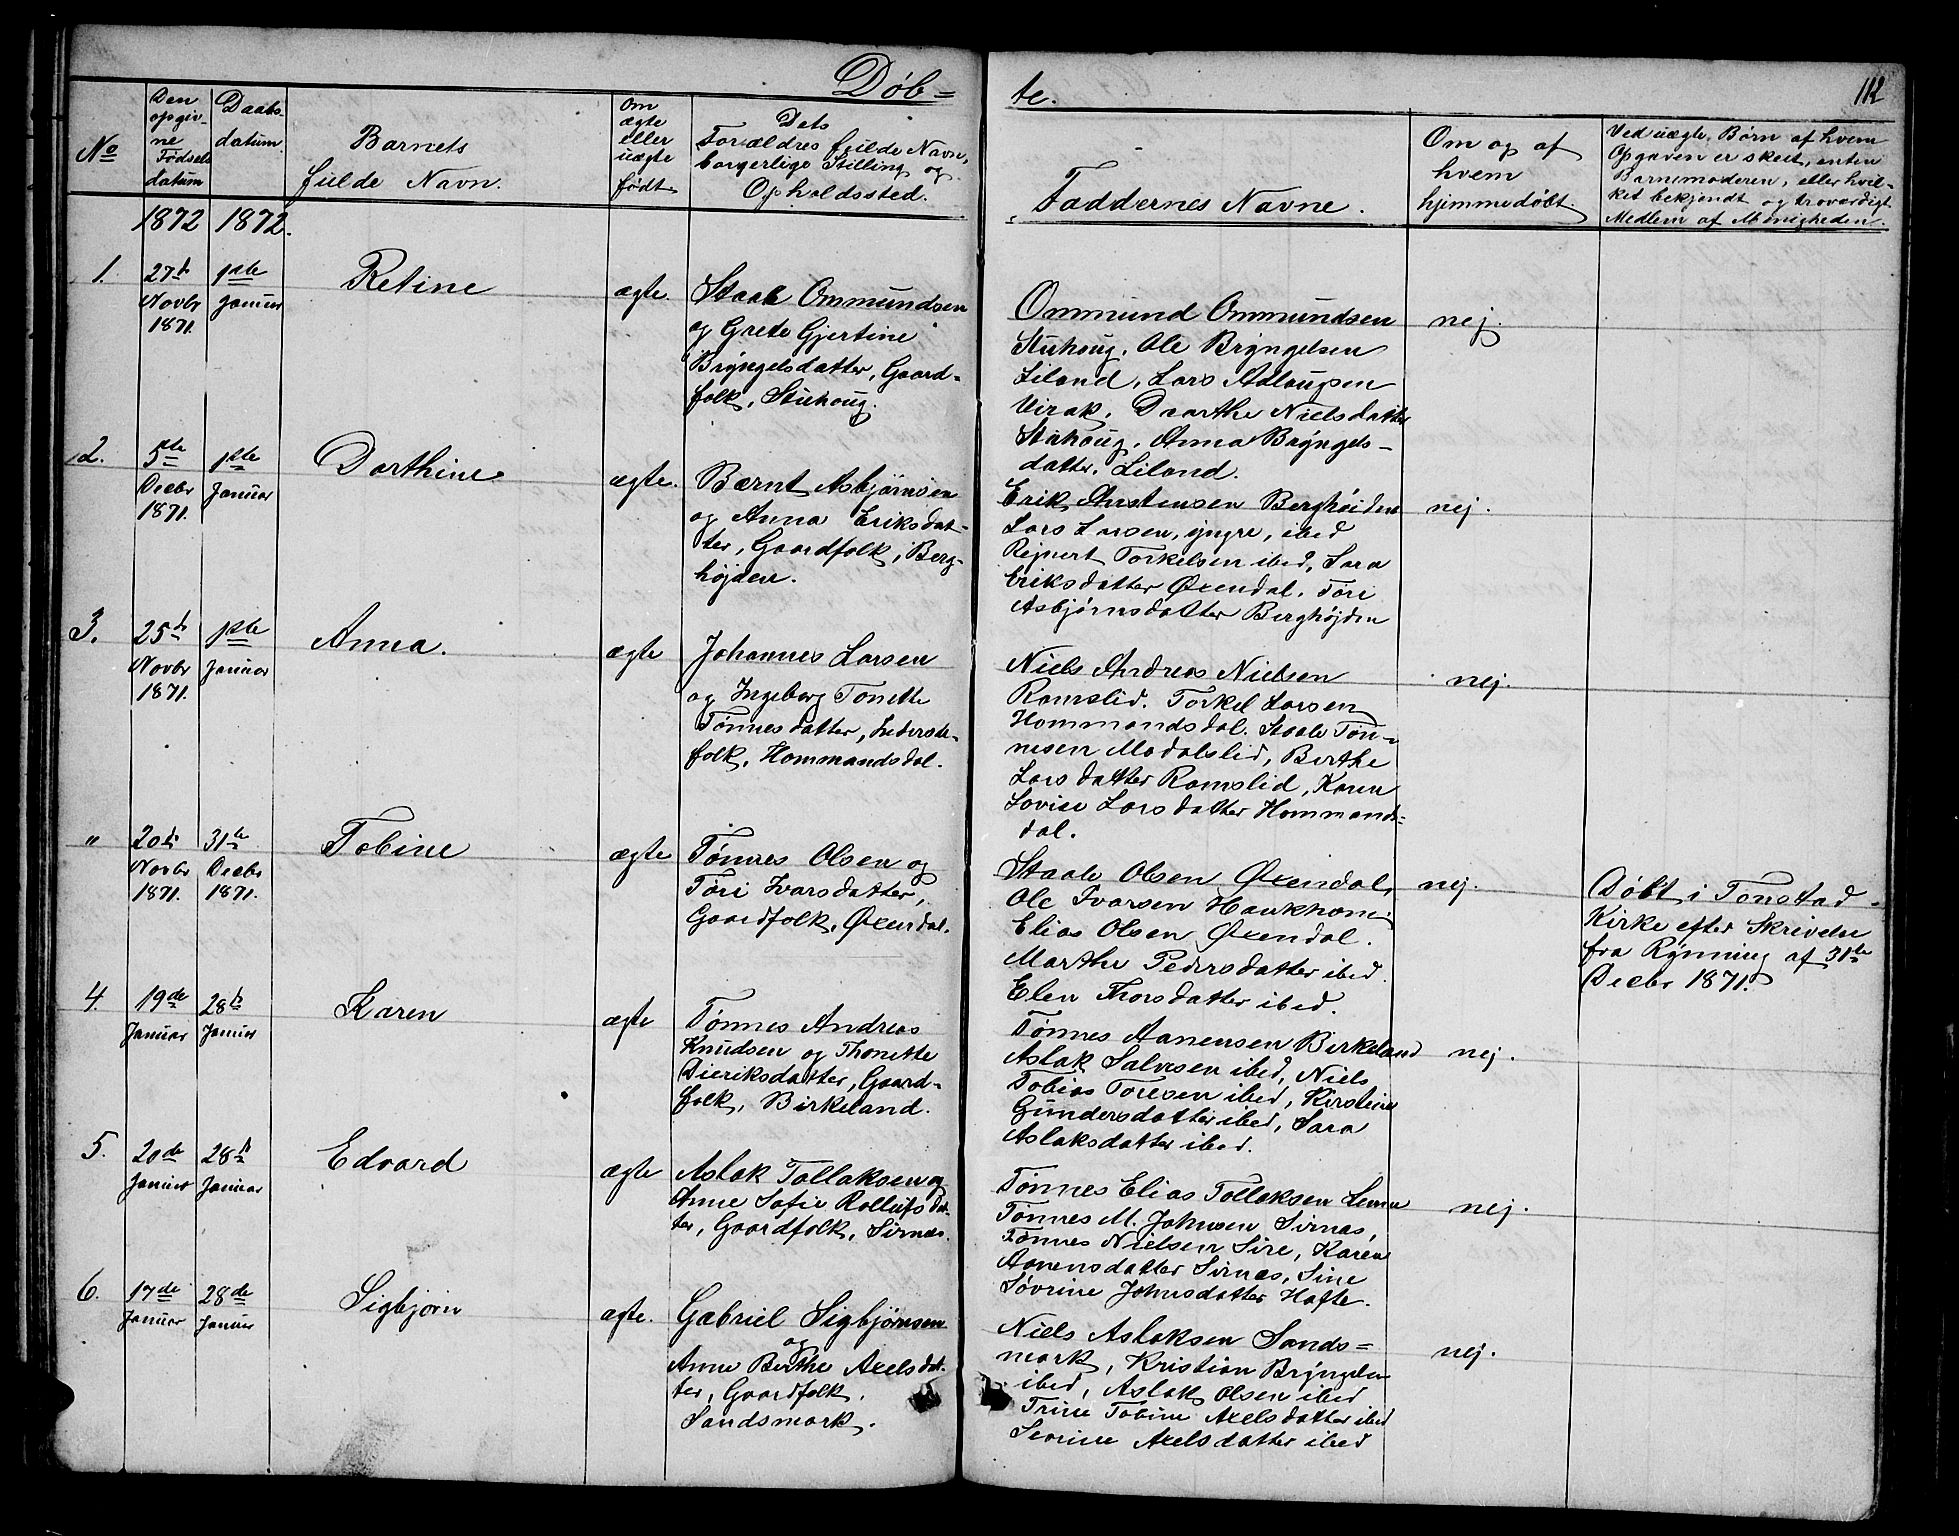 Døb=
te.
112
No
Den opgiv-
ne
Fødsels
datum
Daabs-
datum.
Barnets
fulde Navn.
Om
ægte
eller
uægte
født
Dets
Forældres fulde Navn,
borgerlige Stilling og
Opholdssted.
Faddernes Navne.
Om og af
hvem
hjemmedøbt.
Ved uægte Børn af hvem
Opgaven er skeet, enten
Barnemoderen, eller hvil-
ket bekjendt og troværdigt
Medlem af Menigheden.
1872 1872.
1.
27de
Novbr
1871.
1ste
Januar
Retine
ægte.
Staale Ommundsen
og Grete Gjertine
Brÿngelsdatter, Gaard-
folk, Stuhoug.
Ommund Ommundsen
Stuhoug, Ole Brÿngelsen
Liland, Lars Adlougsen
Virak, Dorthe Nielsdatter
Stuhoug, Anna Brÿngels-
datter, Liland.
nej.
2.
5te
Decbr
1871.
1ste
Januar
Dorthine
ægte.
Bærnt Asbjørnsen
og Anna Eriksdat-
ter, Gaardfolk, Berg-
højden.
Erik Arstensen Berghöiden
Lars Larsen, yngre, ibid
Rejnert Torkelsen ibid, Sara
Eriksdatter Øxendal, Tøri
Asbjørnsdatter Berghøjden
nej.
3.
25de
Novbr
1871.
1ste
Januar
Anna.
ægte
Johannes Larsen
og Ingeborg Tonette
Tønnesdatter, Inderste-
folk, Hommandsdal.
Niels Andreas Nielsen
Ramslid. Torkel Larsen
Hommandsdal. Staale Tøn-
nesen Modalslid, Berthe
Larsdatter Ramslid, Karen
Lovise Larsdatter Hommands-
dal.
nej.
"
20de
Novbr
1871.
31te
Decbr
1871.
Tobine
ægte
Tønnes Olsen og
Tøri Ivarsdatter,
Gaardfolk, Øxendal.
Staale Olsen Øxendal,
Ole Ivarsen Haukhom
Elias Olsen Øxendal.
Marthe Pedersdatter ibid.
Elen Thorsdatter ibid.
nej.
Døbt i Tonstad
Kirke efter Skrivelse
fra Rÿnning af 31te
Decbr 1871.
4.
19de
Januar
28de
Januar
Karen
ægte
Tønnes Andreas
Knudsen og Thonette
Dieriksdatter, Gaard-
folk, Birkeland.
Tønnes Aanensen Birkeland
Aslak Salvesen ibid, Niels
Tobias Toresen ibid, Kirstine
Gundersdatter ibid, Sara
Aslaksdatter ibid.
nej.
5.
20de
Januar
28de
Januar
Edvard
ægte
Aslak Tollaksen og
Anne Sofie Rollufsdat-
ter, Gaardfolk, Sirnæs.
Tønnes Elias Tollaksen
Tønnes M. Johnsen Sirnæs,
Tønnes Nielsen Sire, Karen
Aanensdatter Sirnæs, Sine
Søvrine Johnsdatter Hafte.
nej.
6.
17de
Januar
28de
Januar
Sigbjørn
ægte.
Gabriel Sigbjørnsen
og
Anne Berthe Axelsdat-
ter, Gaardfolk,
Sandsmark.
Niels Aslaksen Sands=
mark, Kristian Brÿngelsen
ibid, Aslak Olsen ibid
Trine Tobine Axelsdatter ibid
Sevrine Axelsdatter ibid
nej.